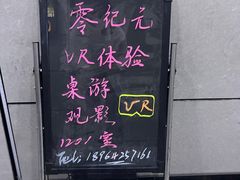 零纪元
VR体验
桌游
观影 VR
1201室
Tel: 18964257161